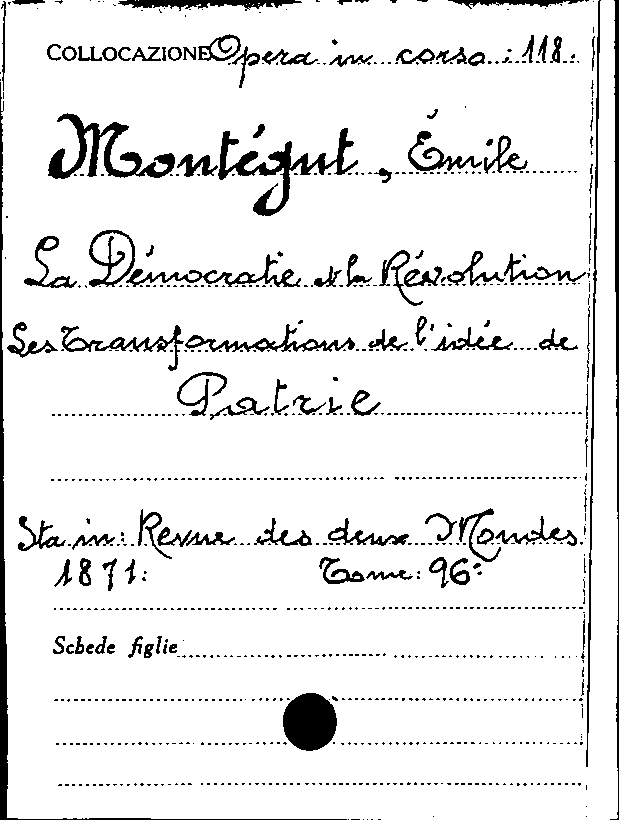 COLLOCAZIONE Opera in corso: 118.
Montégut, Émile
La Démocratie et la Révolution
Les transformations de l'idée de
Patrie
Sta in: Revue des deux Mondes
1871. Tome: 96:
Schede figlie